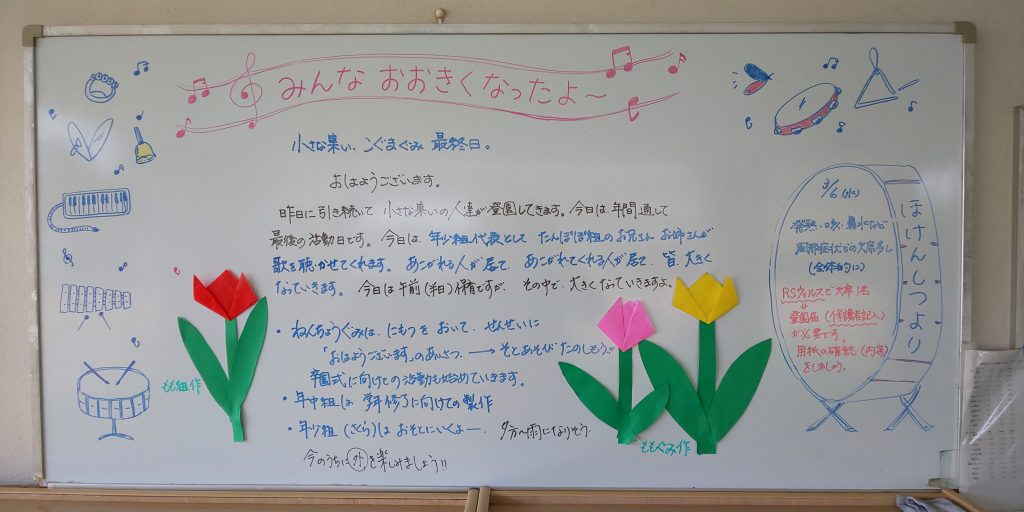 みんな おおきくなったよ～
小さな集い、こぐまぐみ 最終日。
おはようございます。
昨日に引き続いて 小さな集いの人達が登園してきます。今日は年間通して
最後の活動日です。今日は、年少組代表として たんぽぽ組のお兄さん お姉さんが
歌を聴かせてくれます。 あこがれる人が居て、 あこがれてくれる人が居て、皆、大きく
なっていきます。 今日は午前(半日)保育ですが、 その中で、大きくなっていきますよ。
・ねんちょうぐみは、にもつを おいて、せんせいに
「おはようございます。」のあいさつ。→ そとあそび たのしもう!!
卒園式に向けての活動も始めていきます。
・年中組は 学年修了に向けての製作
・年少組 (さくら)は おそとにいくよー。 夕方〜雨になりそう。
今のうちに外を楽しみましょう!!
もも組作
ももぐみ作
ほけんしつより
3/6 (水)
発熱・咳・鼻水など
風邪症状での欠席多し
(全体的に)
RSウィルスで欠席1名
登園届 (保護者記入)
が必要です。
用紙の確認 (内容)
をしましょう。